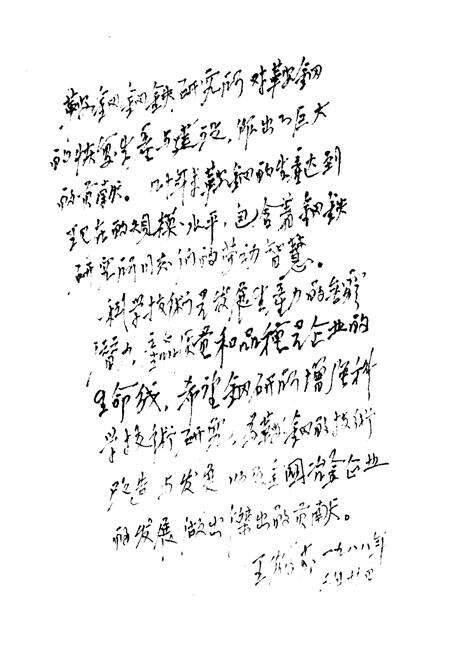 鞍钢钢铁研究所对鞍钢
的恢复生产与建设，作出了巨大
的贡献。四十年来鞍钢的生产达到
现在的规模水平，包含着钢铁
研究所同志们的劳动智慧。
科学技術是发展生產力的
潜力，產品质量和品種是企业的
生命线，希望钢研所增强科
学技術研究，為鞍钢的技術
改造与发展以及全國冶金企业
的发展做出傑出的贡献。
王 一九八八年